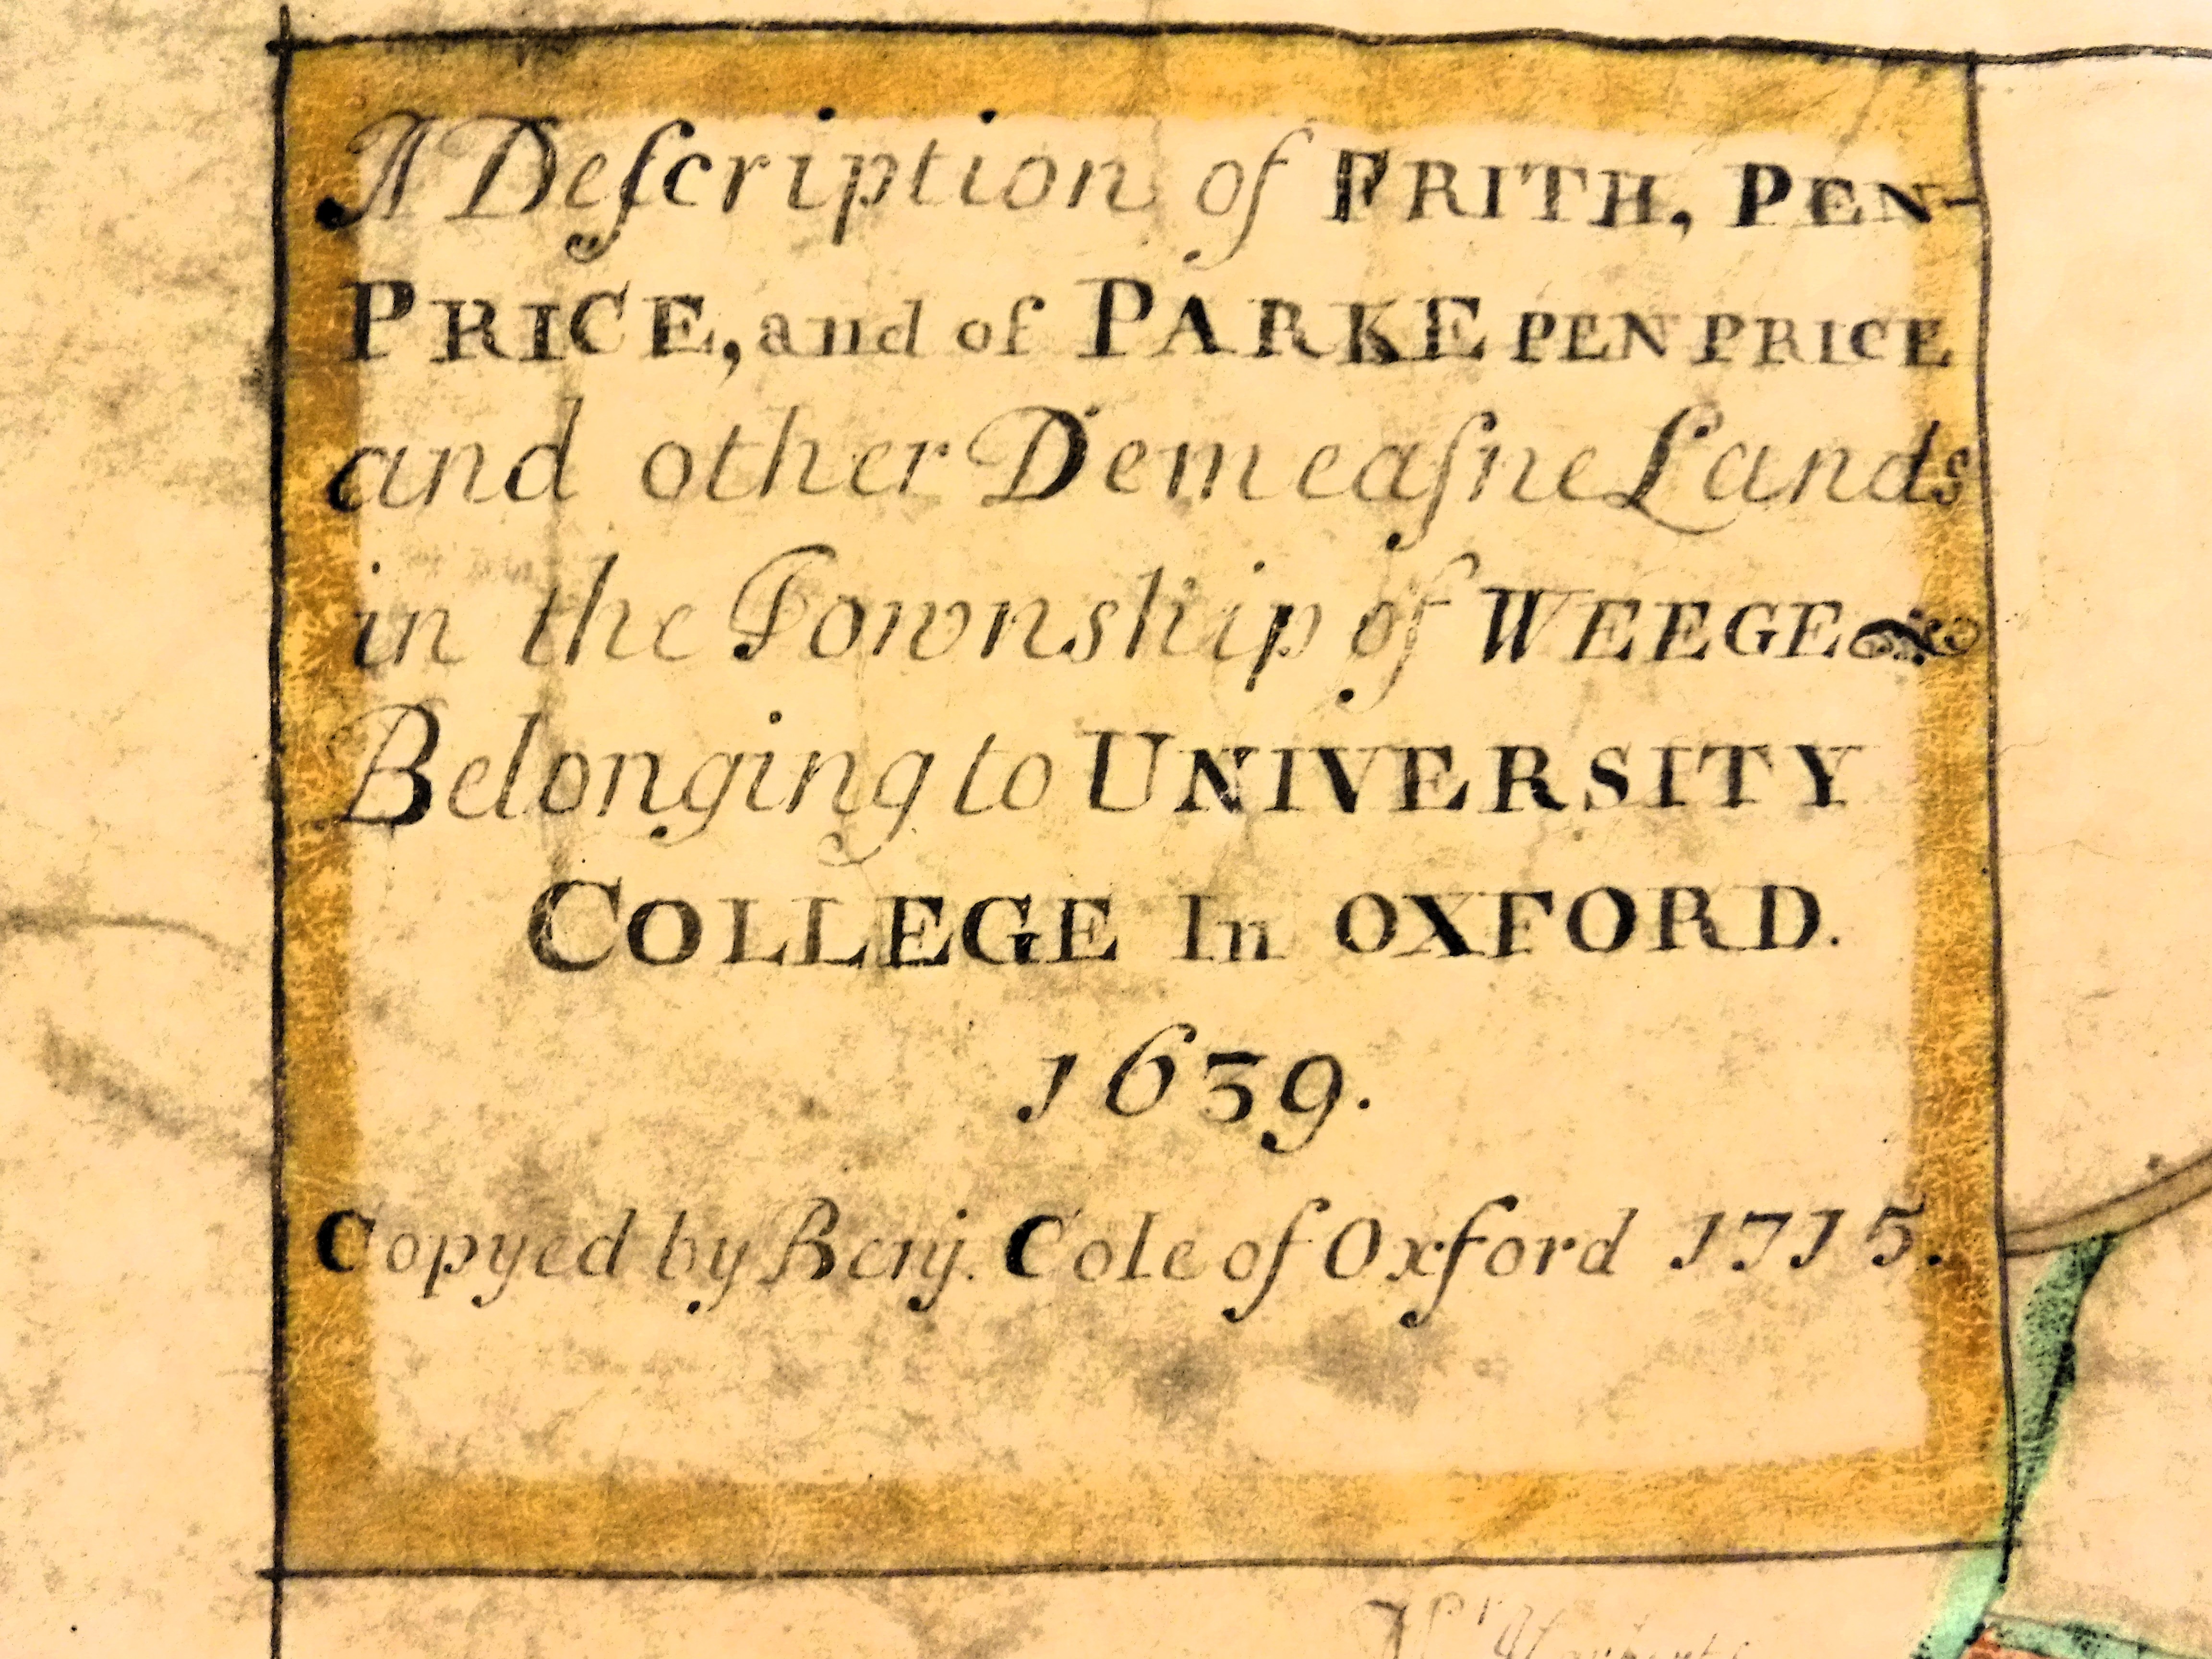 A Deſcription of FRITH, PEN-
PRICE, and of PARKE PEN PRICE
and other Demeaſne Lands
in the Township of WEEGE
Belonging to UNIVERSITY
COLLEGE In OXFORD.
1639.
Copyed by Benj. Cole of Oxford 1715.